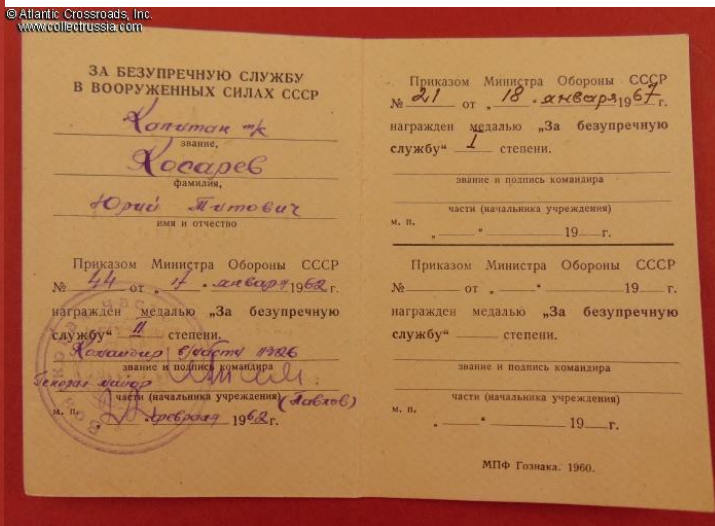 © Atlantic Crossroads, Inc.
www.collectrussia.com
ЗА БЕЗУПРЕЧНУЮ СЛУЖБУ
В ВООРУЖЕННЫХ СИЛАХ СССР
Капитан т/к
звание,
Косарев
фамилия,
Юрий Титович
имя и отчество
Приказом Министра Обороны СССР
№ 44 от „ 17 " января 1962 г.
награжден медалью „За безупречную
службу“ II степени.
Командир в/части 11326
звание и подпись командира
Генерал майор
части (начальника учреждения) (Павлов)
м. п. февраля 1962 г.
Приказом Министра Обороны СССР
№ 21 от „ 18 " января 1967 г.
награжден медалью „За безупречную
службу“ I степени.
звание и подпись командира
части (начальника учреждения)
м. п.
„ “ 19 г.
Приказом Министра Обороны СССР
№ от „ “ 19 г.
награжден медалью „За безупречную
службу“ степени.
звание и подпись командира
части (начальника учреждения)
м. п.
„ “ 19 г.
МПФ Гознака. 1960.